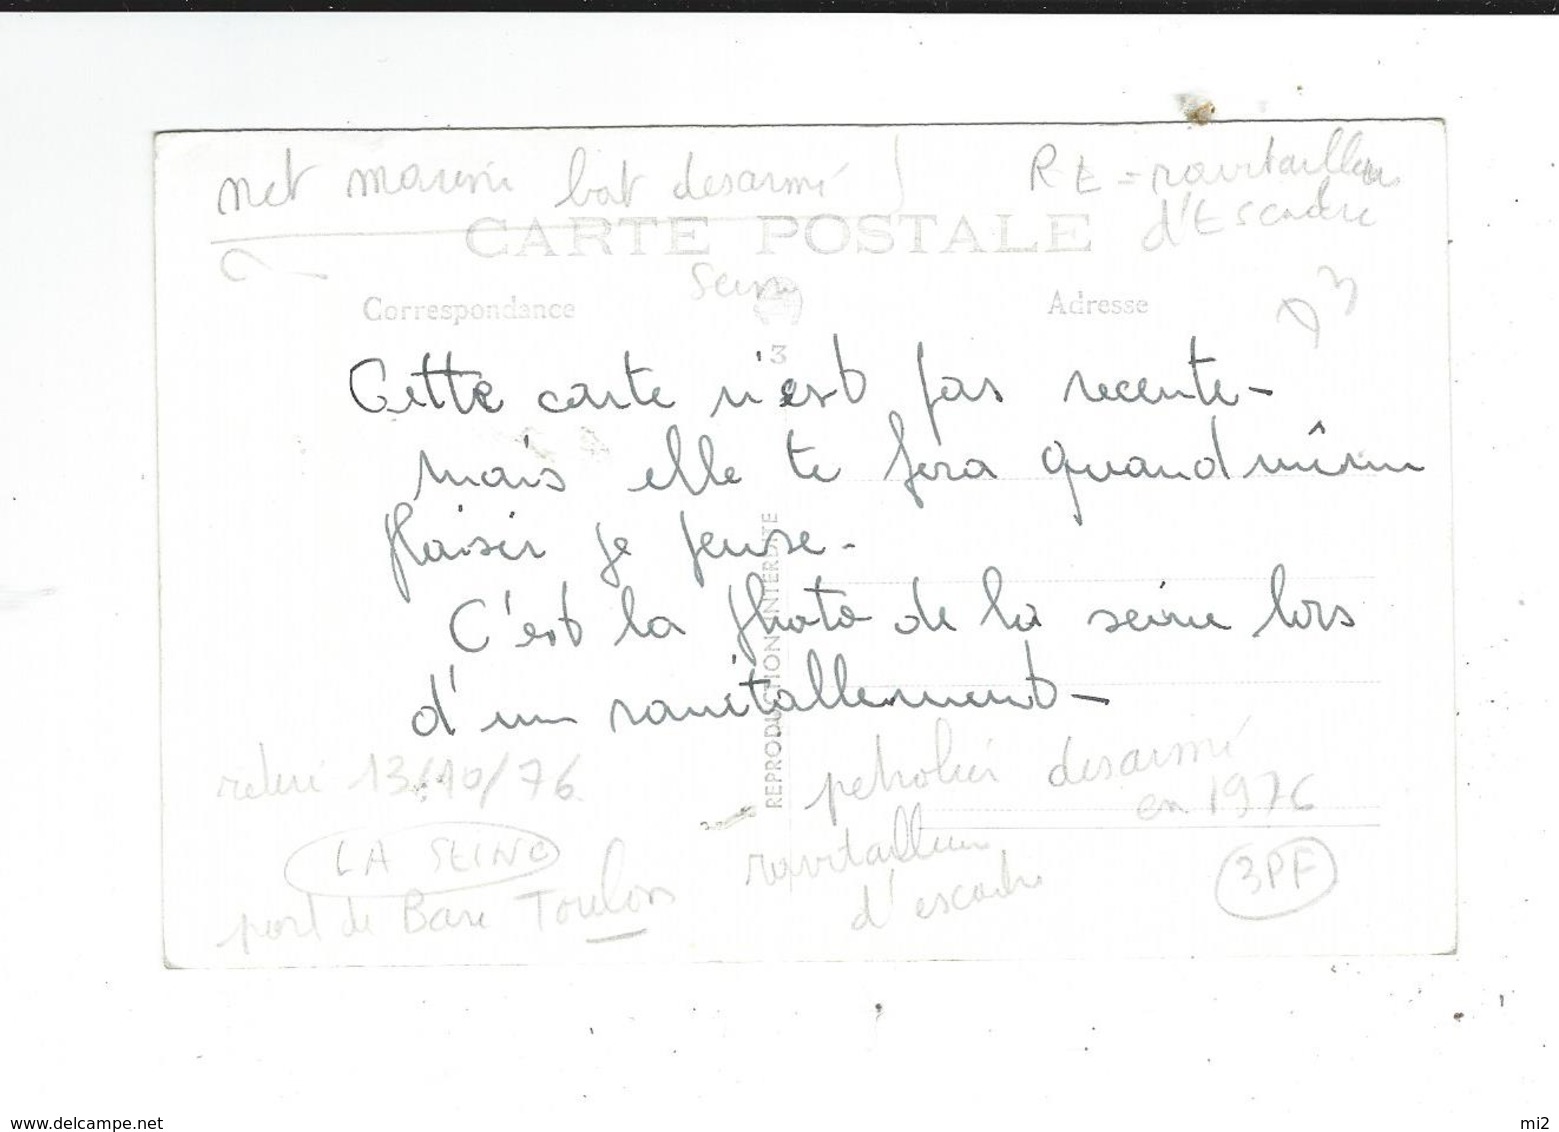 net marine bat desarmé
RE = ravitailleur
d'Escadre
CARTE POSTALE
Seine
Correspondance
Adresse
3
Cette carte n'est pas recente -
mais elle te fera quand même
plaisir je pense -
C'est la photo de la seine lors
d'un ravitallement -
REPRODUCTION INTERDITE
13/10/76
petrolier desarmé
en 1976
LA SEINE
ravitailleur
d'escadre
3PF
port de Base Toulon
www.delcampe.net
mi2